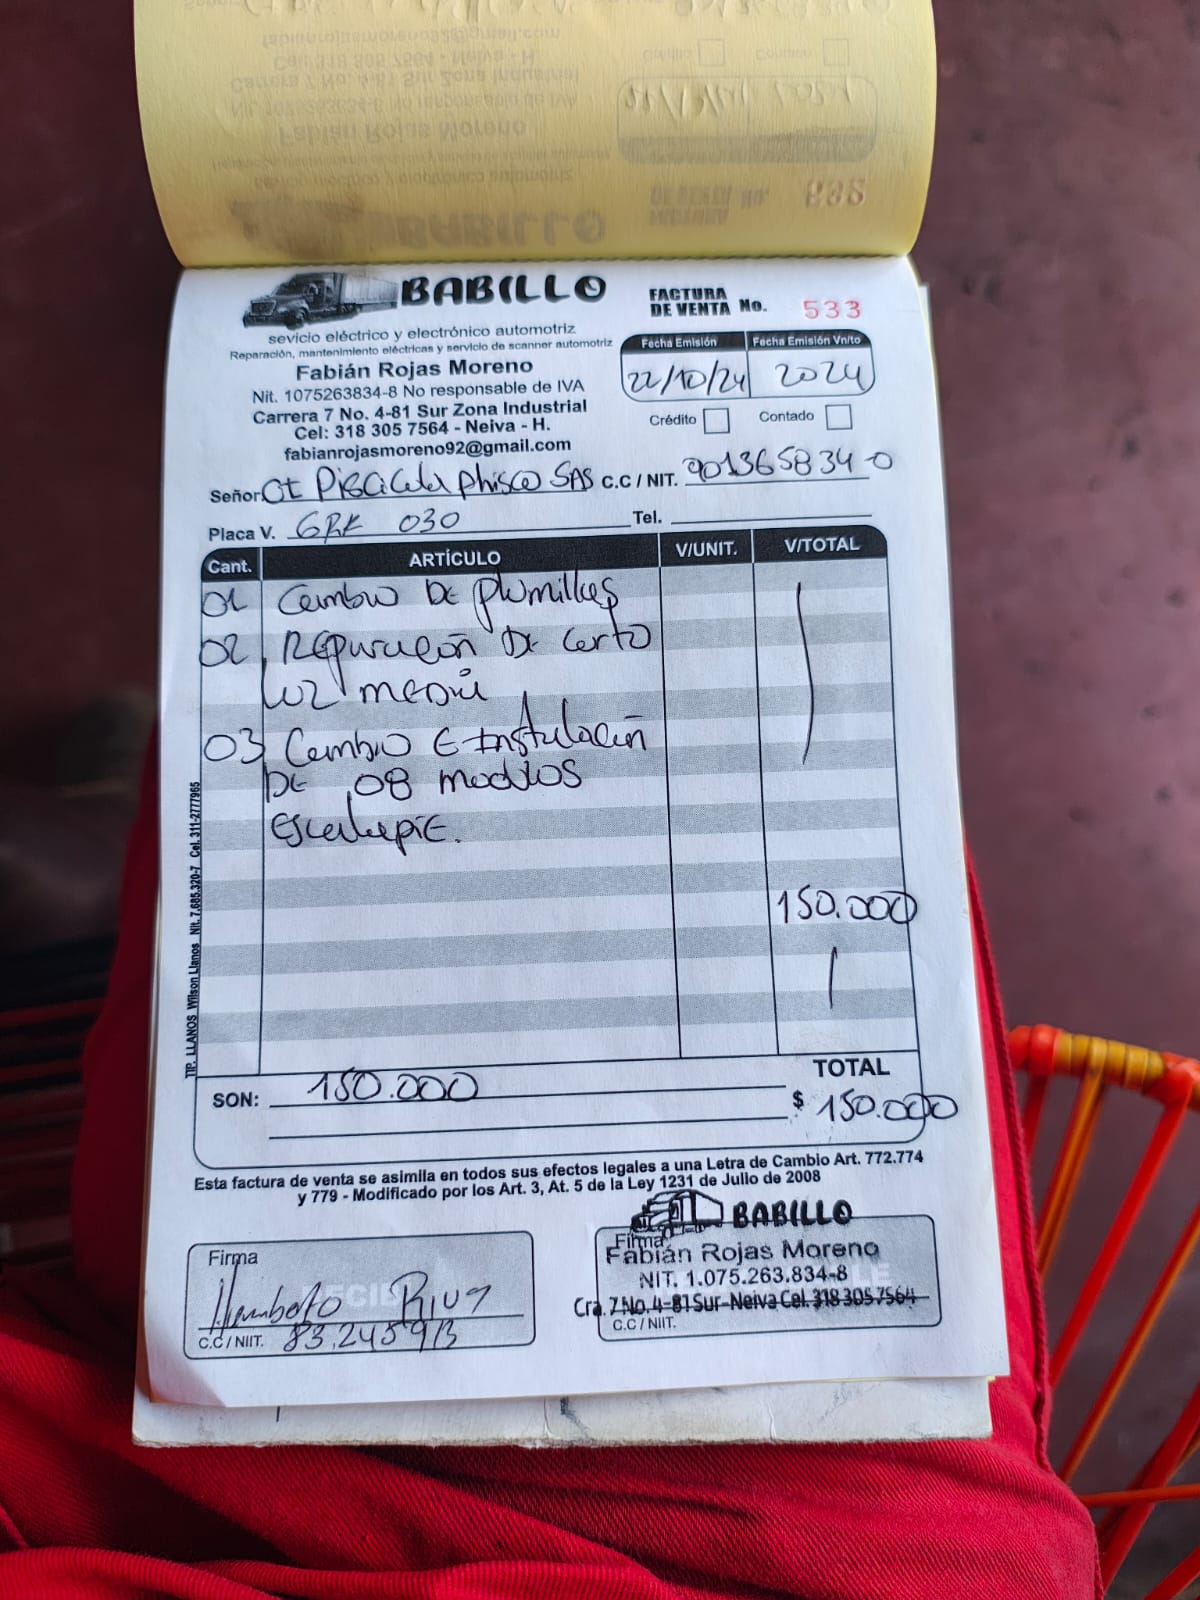 BABILLO
sevicio eléctrico y electrónico automotriz
Reparación, mantenimiento eléctricas y servicio de scanner automotriz
Fabián Rojas Moreno
Nit. 1075263834-8 No responsable de IVA
Carrera 7 No. 4-81 Sur Zona Industrial
Cel: 318 305 7564 - Neiva - H.
fabianrojasmoreno92@gmail.com
FACTURA
DE VENTA No. 533
Fecha Emisión Fecha Emisión Vn/to
22/10/24 2024
Crédito Contado
Señor: Piscicola phisco SAS C.C / NIT. 901365834-0
Placa V. GRK 030 Tel.
Cant. ARTÍCULO V/UNIT. V/TOTAL
01 Cambio De plumillas
02 Reparación De corto
luz media
03 Cambio E Instalación
DE 08 modulos
150.000
TOTAL
SON: 150.000 $ 150.000
Esta factura de venta se asimila en todos sus efectos legales a una Letra de Cambio Art. 772.774
y 779 - Modificado por los Art. 3, At. 5 de la Ley 1231 de Julio de 2008
Firma
Humberto
C.C / NIIT. 83.245913
BABILLO
Firma
Fabián Rojas Moreno
NIT. 1.075.263.834-8
Cra. 7 No. 4-81 Sur-Neiva Cel. 318 305 7564
C.C / NIIT.
TIP. LLANOS Wilson Llanos Nit. 7.685.320-7 Cel. 311-2777965